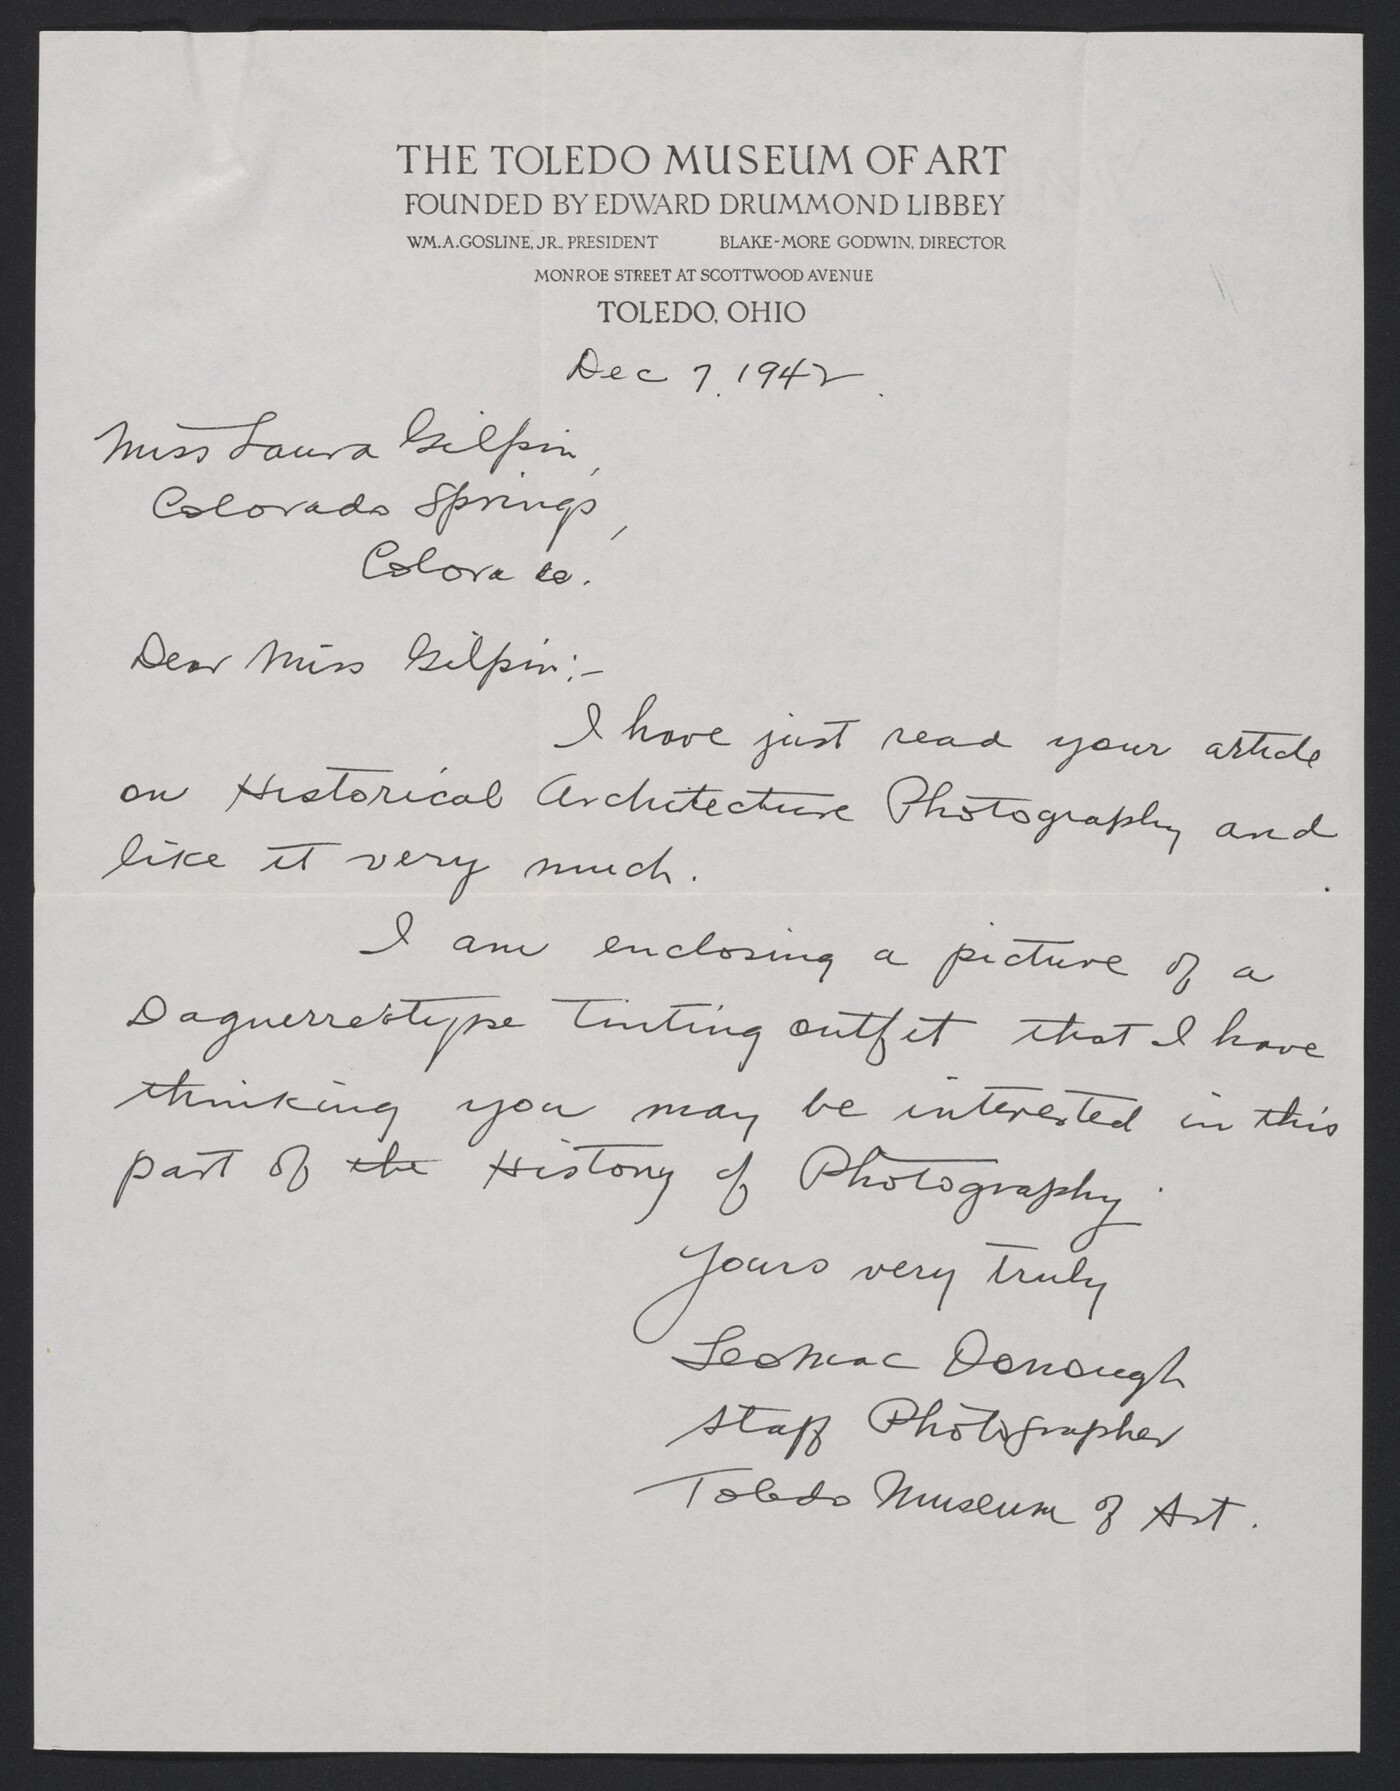 THE TOLEDO MUSEUM OF ART
FOUNDED BY EDWARD DRUMMOND LIBBEY
WM. A. GOSLINE, JR., PRESIDENT BLAKE-MORE GODWIN, DIRECTOR
MONROE STREET AT SCOTTWOOD AVENUE
TOLEDO, OHIO
Dec 7, 1942.
Miss Laura Gilpin,
Colorado Springs,
Colorado.
Dear Miss Gilpin:-
I have just read your article
on Historical Architecture Photography and
like it very much.
I am enclosing a picture of a
Daguerreotype Tinting outfit that I have
thinking you may be interested in this
part of the History of Photography.
Yours very truly
Leo Mac Donough
Staff Photographer
Toledo Museum of Art.